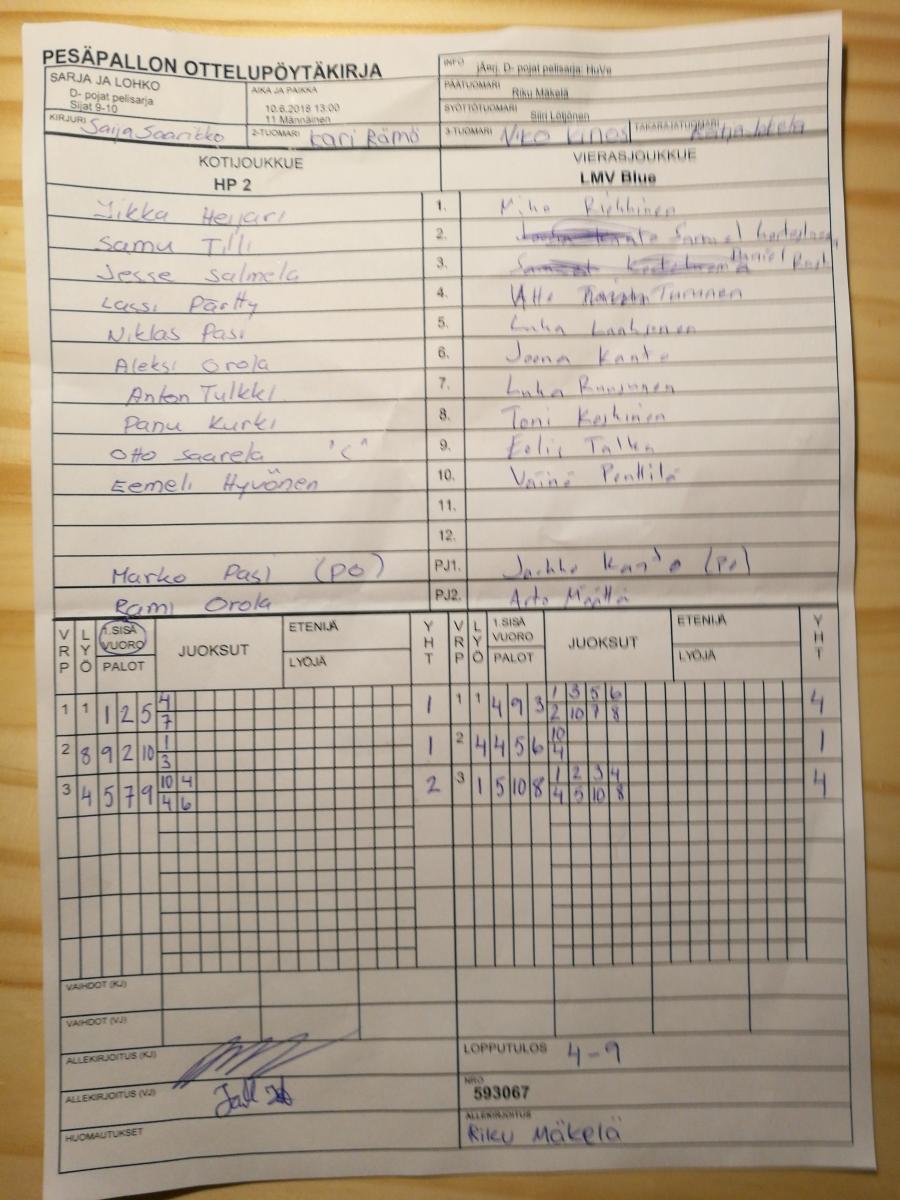 PESÄPALLON OTTELUPÖYTÄKIRJA
INFO jÄerj. D- pojat pelisarja: HuVe
SARJA JA LOHKO
D- pojat pelisarja
Sijat 9-10
AIKA JA PAIKKA
10.6.2018 13:00
11 Männäinen
PÄÄTUOMARI Riku Mäkelä
SYÖTTÖTUOMARI Siiri Lötjönen
KIRJURI Saija Saarikko
2-TUOMARI Kari Rämö
3-TUOMARI Niko
TAKARAJATUOMARI Katja Jokela
KOTIJOUKKUE VIERASJOUKKUE
HP 2 LMV Blue
Heijari 1. Riekkinen
Samu Tilli 2. Samuel
Jesse Salmela 3. Daniel
Lassi Pärtty 4. Turunen
Niklas Pasi 5. Luka
Aleksi Orola 6. Joona Kanto
Anton Tulkki 7. Luka Ruusunen
Panu Kurki 8. Toni Koskinen
Otto Saarela "C" 9. Eelis
Eemeli Hyvönen 10. Väinö Penttilä
11.
12.
Marko Pasi (PO) PJ1. Kanto (PO)
Rami Orola PJ2. Arto Määttä
VRP LYÖ 1.SISÄ VUORO PALOT JUOKSUT ETENIJÄ LYÖJÄ YHT VRP LYÖ 1.SISÄ VUORO PALOT JUOKSUT ETENIJÄ LYÖJÄ YHT
1 1 1 2 5 4 1 1 1 4 9 3 1 3 5 6 4
7 2 10 7 8
2 8 9 2 10 1 1 2 4 4 5 6 10 1
3 4
3 4 5 7 9 10 4 2 3 1 5 10 8 1 2 3 4 4
4 6 4 5 10 8
VAIHDOT (KJ)
VAIHDOT (VJ)
ALLEKIRJOITUS (KJ)
LOPPUTULOS 4-9
ALLEKIRJOITUS (VJ)
NRO
593067
HUOMAUTUKSET
ALLEKIRJOITUS
Riku Mäkelä